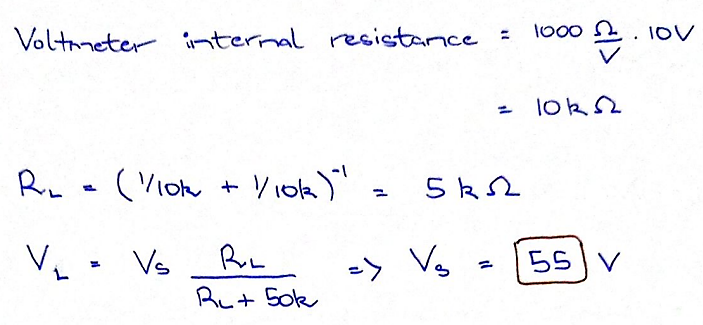 Voltmeter internal resistance = 1000 Ω/V . 10V
= 10k Ω
R_L = (1/10k + 1/10k)^-1 = 5 k Ω
V_L = Vs R_L / (R_L + 50k) => Vs = 55 V